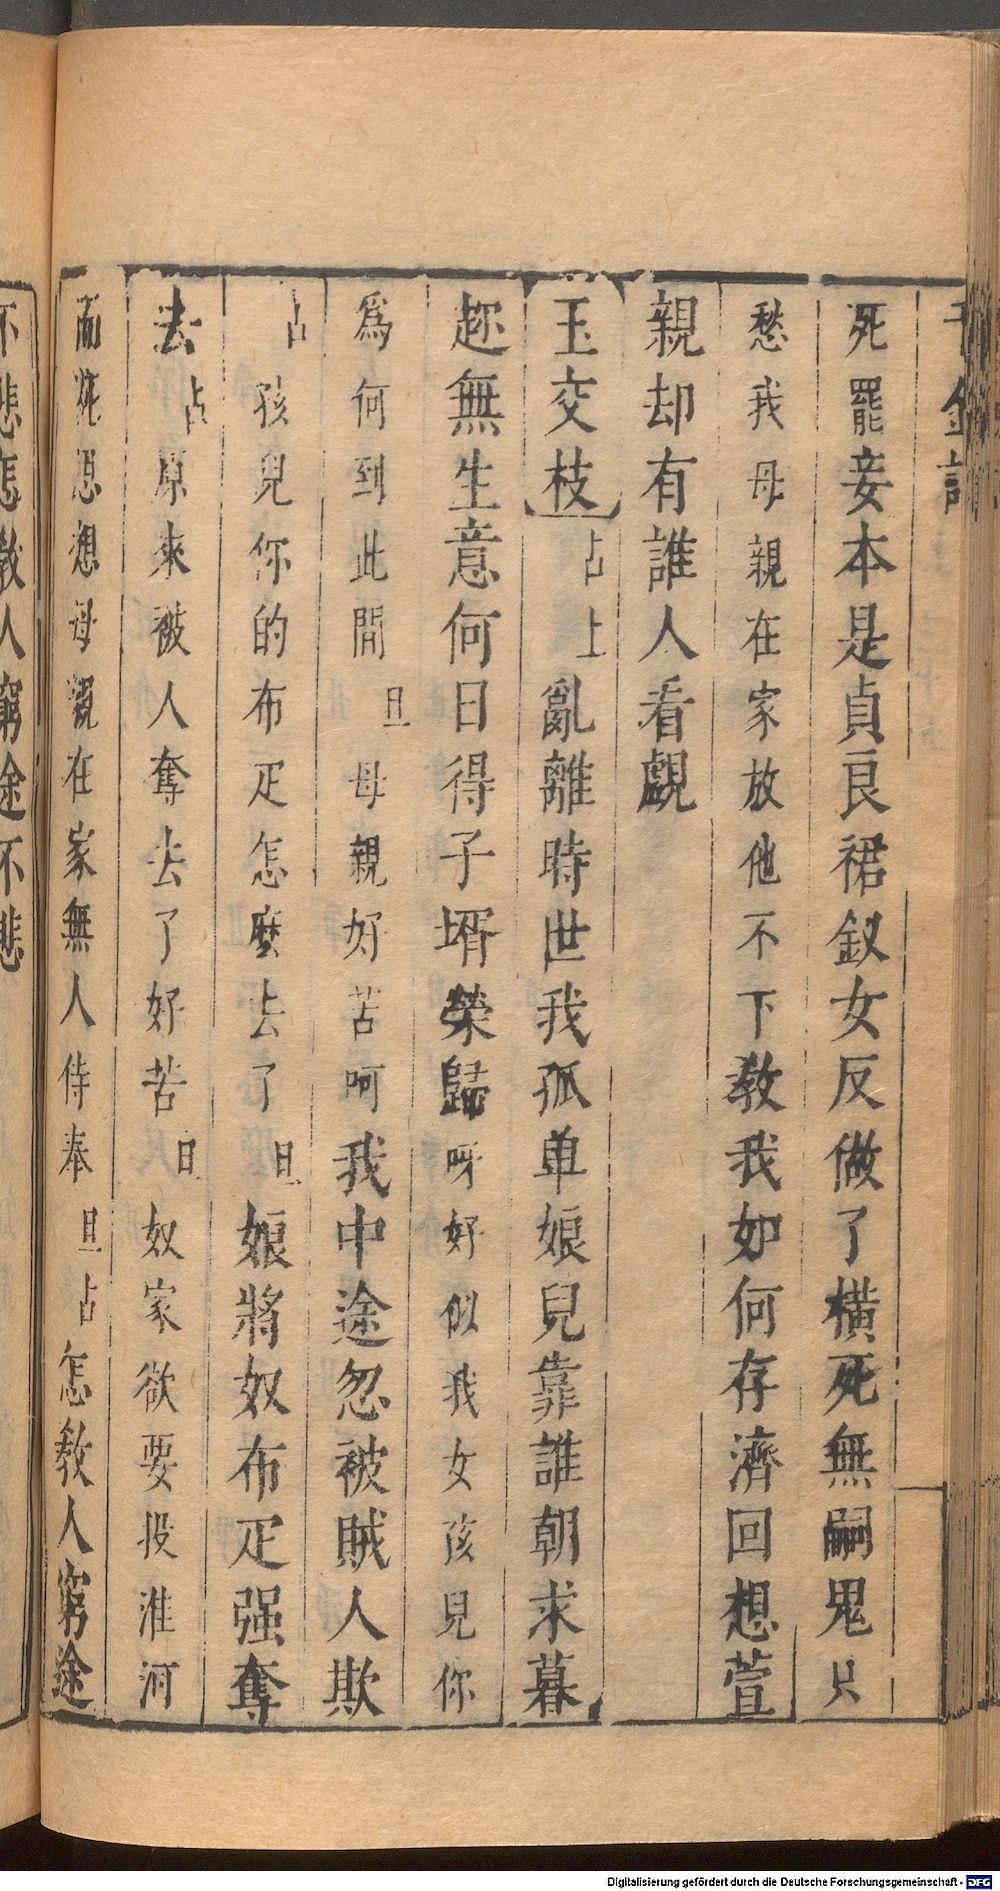 千金記
死罷妾本是貞良裙釵女反做了橫死無嗣鬼只
愁我母親在家放他不下教我如何存濟回想萱
親却有誰人看覷
玉交枝占上亂離時世我孤單娘兒靠誰朝求暮
趂無生意何日得子壻榮歸呀好似我女孩兒你
為何到此間旦母親好苦呵我中途忽被賊人欺
占孩兒你的布疋怎麼去了旦娘將奴布疋强奪
去占原來被人奪去了好苦旦奴家欲要投淮河
而死思想母親在家無人侍奉旦占怎教人窮途
不悲怎教人窮途不悲
Digitalisierung gefördert durch die Deutsche Forschungsgemeinschaft - DFG